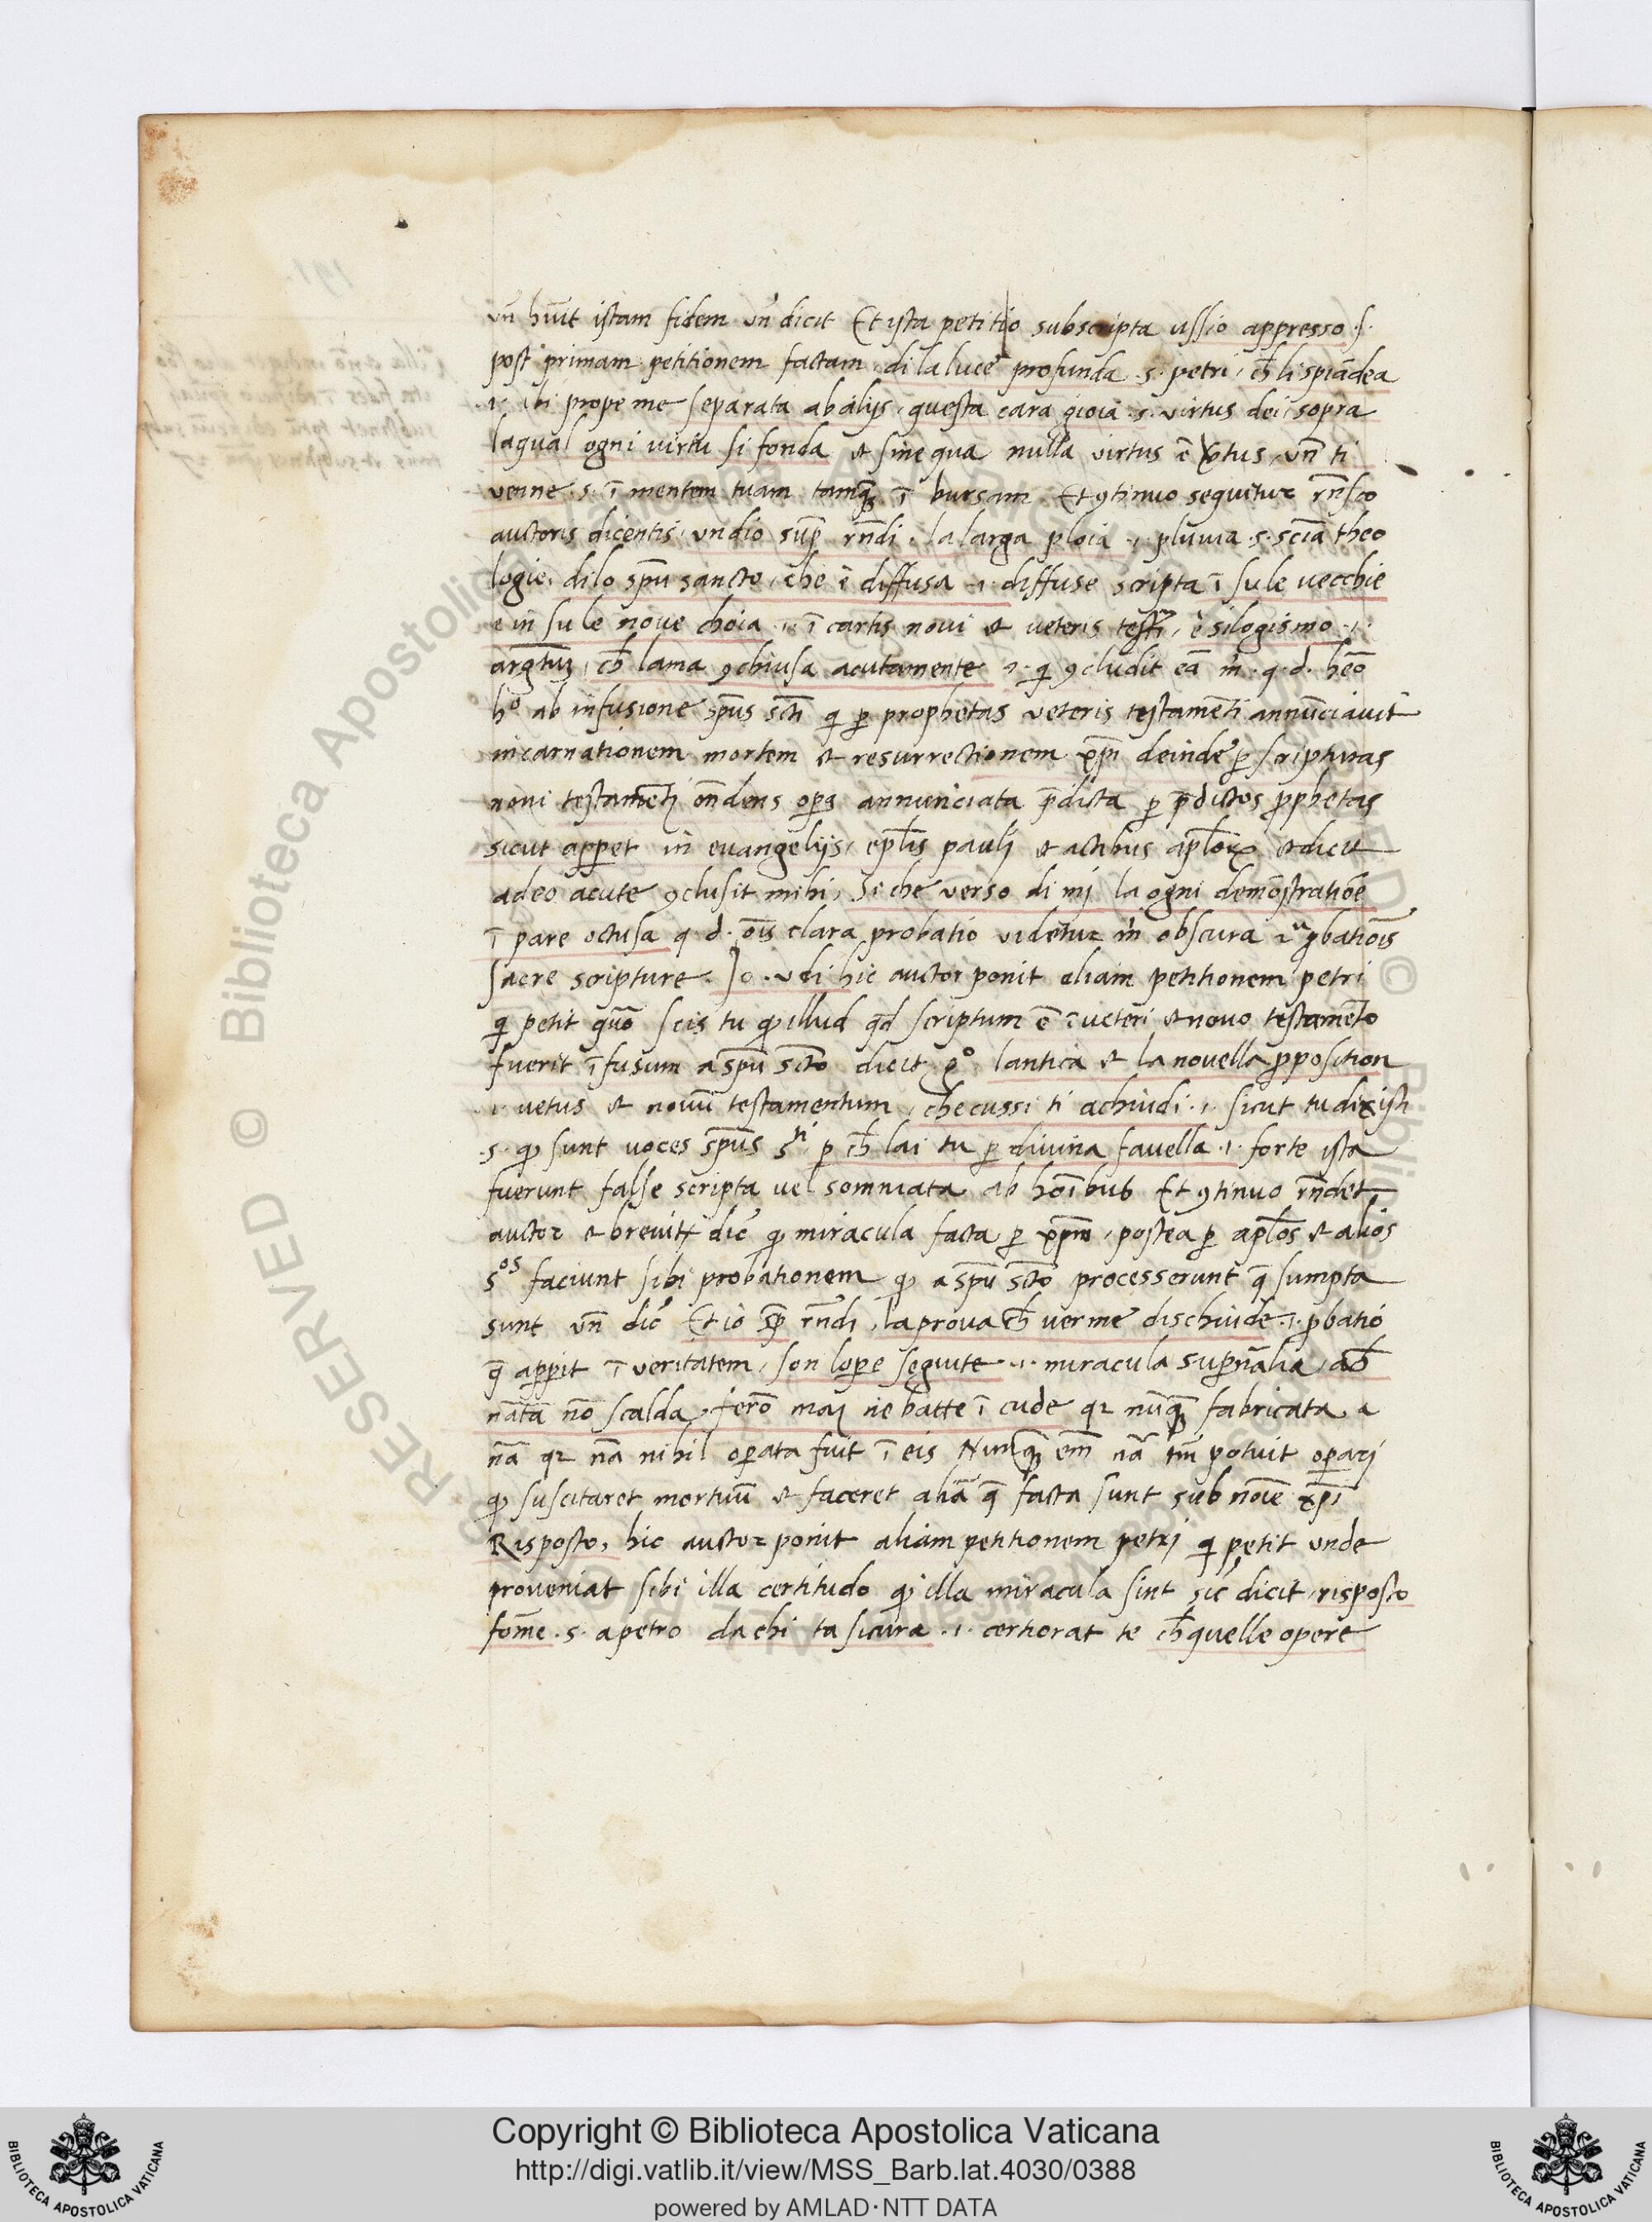 vn̄ huīt istam fidem vn̄ dicit Et ista petitio subscripta ussio appresso .s.
post primam petitionem factam di la luce profunda .s. petri, ch̄ li spiādea
.i. ibi prope me separata ab alijs, questa cara gioia .s. virtus dei sopra
la qual ogni virtu si fonda et sine qua nulla virtus ē v̄tus, vn̄ ti
venne .s. ī mentem tuam tamq̄ ī bursam. Et 9tinuo sequitur rn̄sio
auctoris dicentis, vn dio sup̄ rn̄di, la larga ploia .i. pluuia .s. scīa theo
logie, di lo spū sancto, che ē diffusa .i. diffuse scripta ī su le vecchie
e in su le noue choia .i. ī cartis novi et veteris testī, e silogismo .i.
argtuʒ, ch̄ lama 9chiusa acutamente .i. qi 9cludit eā m̄ .q.d. heō
h° ab infusione sp̄us sc̄ti qi p̱ prophetas veteris testamēti annūciauit
incarnationem mortem et resurrectionem xp̄i deinde p̱ scripturas
noui testamēti on̄dens opa annunciata p̄dicta p̱ p̄dictos pphetas
sicut apparet in euangelijs, ep̄lis pauli et actibus ap̄lor et dicit
adeo acute 9clusit mihi, Si che verso di mj la ogni demōstratiōe
ī pare octusa q d. oīs clara probatio videtur m̄ obscura rᵘ pbatiōis
sacre scripture. Io vdi hic auctor ponit aliam petitionem petri
qi petit quō scis tu qp illud qd scriptum ē ī veteri et nouo testamēto
fuerit īfusum a spū sc̄to dicit g° lantica et la nouella pposition
.i. vetus et nouū testamentum, che cussi ti achiudi .i. sicut tu dixisti
.s. qp sunt voces sp̄us sᵗⁱ p̱ ch̄ lai tu p̱ diuina fauella .i. forte ista
fuerunt false scripta uel somniata ab hoībus Et 9tinuo rn̄det
auctor et breuitr dic̄ qp miracula facta p̱ xp̄m, postea p̱ ap̄los et alios
sᵒˢ faciunt sibi probationem qp a spū sc̄to processerunt q̄ sumpta
sunt vn̄ dic̄ Et io sp̄ rn̄di, la proua ch̄ uer me dischiude .i. pbatio
q̄ apparit ī veritatem, son lope seguite .i. miracula supn̄alia, a ch̄
natā nō scalda ferō maj ne batte ī cude qr nūq̄ fabricata a
nā qr nā nihil opata fuit ī eis Nunq̄ em̄ nā tm̄ potuit opari
qp suscitaret mortuū et faceret aliā q̄ facta sunt sub noīe xp̄i
Risposto, hic auctor ponit aliam petitionem petri qi petit unde
proueniat sibi illa certitudo qp illa miracula sint sic dicit, risposto
fom̄e .s. a petro da chi ta sicura .i. certiorat te ch̄ quelle opere
Copyright © Biblioteca Apostolica Vaticana
http://digi.vatlib.it/view/MSS_Barb.lat.4030/0388
powered by AMLAD·NTT DATA